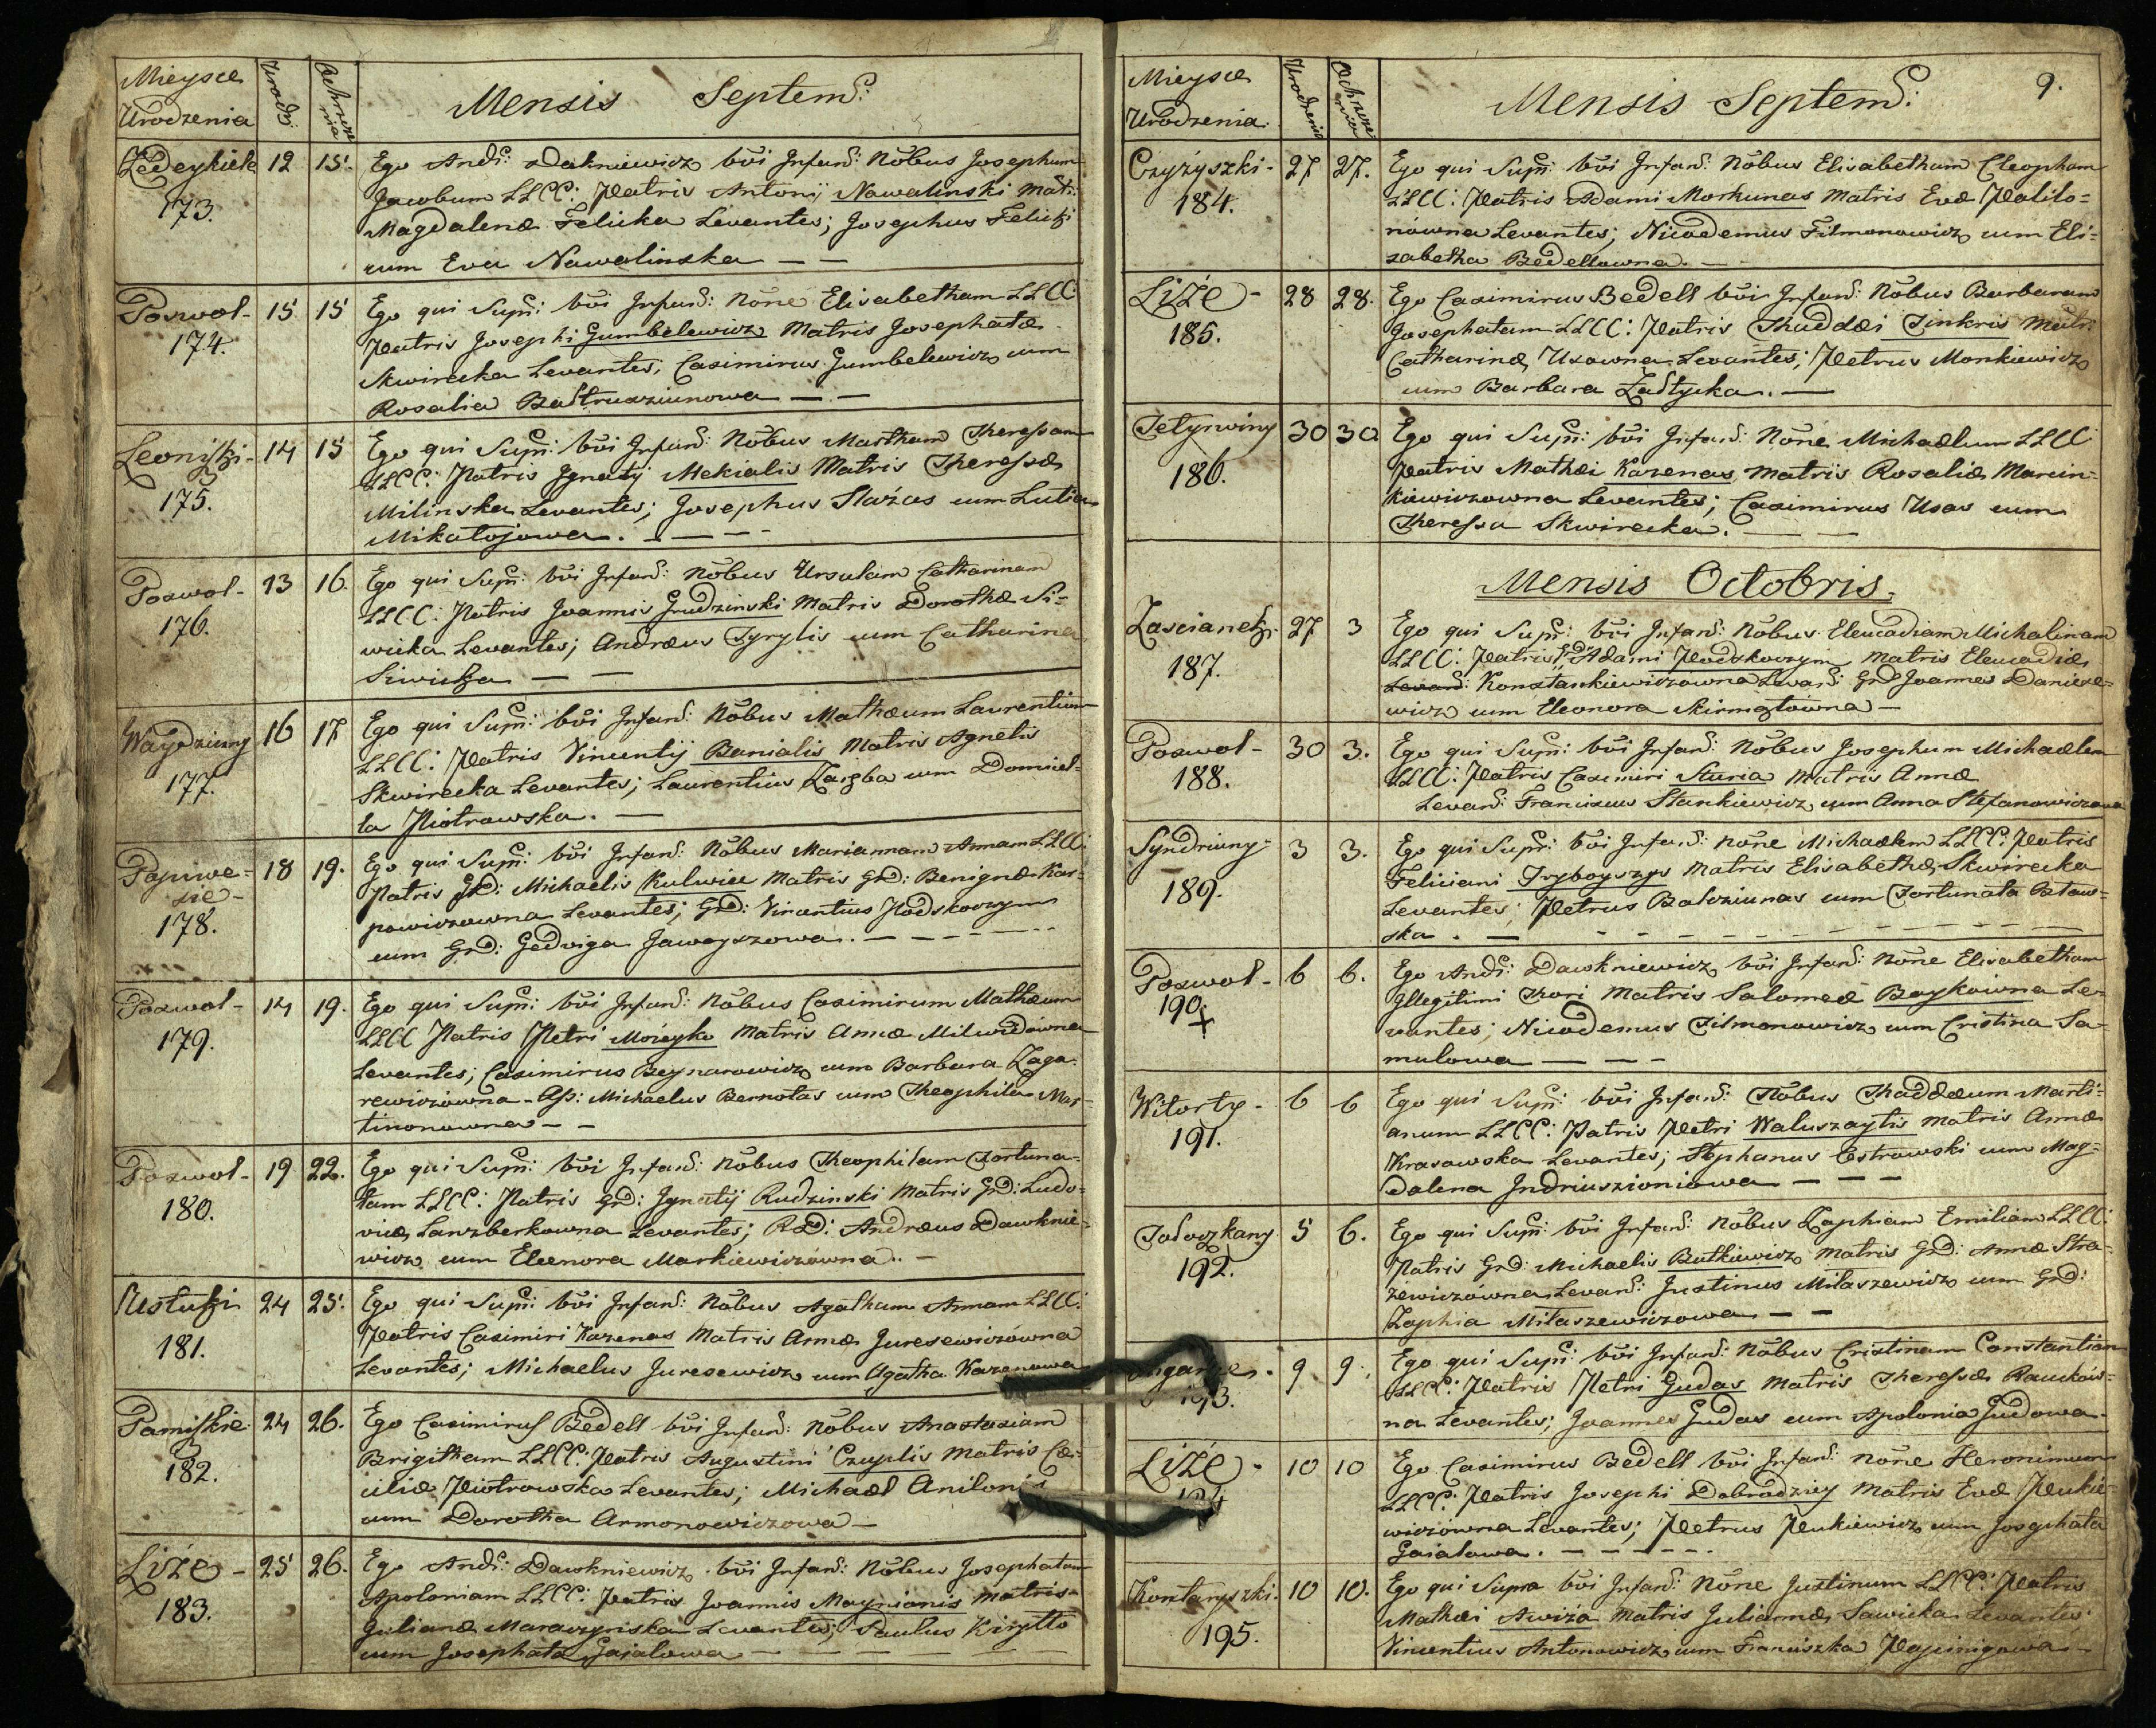 Mieysce
Urodzenia
Urodz:
Ochrzcze
nia
Mensis Septem:
Zedeykiele 12 15. Ego Andr: Dakniewicz bti Infan: Nobus Josephum
173. Jacobum LLCC: Patris Antonij Nawalinski Matr:
Magdalenæ Felicka Levantes; Josephus Felicki
cum Eva Nawalinska — —
Poswol- 15 15 Ego qui Supr: bti Infan: None Elisabetham LLCC
174. Patris Josephi Gumbelewicz Matris Josephatæ
Skwirecka Levantes; Casimirus Gumbelewicz cum
Rosalia Bastruszunowa — —
Leoniszki- 14 15 Ego qui Supr: bti Infan: Nobus Martham Theressam
175. LLCC: Patris Ignatij Mekialis Matris Theressæ
Milinska Levantes; Josephus Slazas cum Lutia
Mikalojowa. — — —
Poswol- 13 16. Ego qui Supr: bti Infan: Nobus Ursulam Catharinam
176. LLCC: Patris Joannis Grudzinski Matris Dorothæ Si=
wicka Levantes; Andræus Tyrylis cum Catharina
Siwicka — —
Waydziuny 16 17 Ego qui Supr: bti Infan: Nobus Mathæum Laurentium
177. LLCC: Patris Vincentij Banialis Matris Agnetis
Skwirecka Levantes; Laurentius Zaręba cum Domicel=
la Piotrowska. —
Papiwe= 18 19. Ego qui Supr: bti Infan: Nobus Mariannam Annam LLCC:
sie- Patris GD: Michaelis Kulwiec Matris GD: Benignæ Kar=
178. powiczowna Levantes; GD: Vincentius Podskoczym
cum GD: Gedviga Jawoyszowa. — — —
Poswol- 14 19. Ego qui Supr: bti Infan: Nobus Casimirum Mathæum
179. LLCC Patris Petri Mozeyko Matris Annæ Milwidowna
Levantes; Casimirus Beynarowicz cum Barbara Zaga=
rewiczowna - Ass: Michaelus Bernotas cum Theophila Mar=
tinonowna — —
Poswol- 19 22. Ego qui Supr: bti Infan: Nobus Theophilam Fortuna=
180. tam LLCC: Patris GD: Ignatij Rudzinski Matris GD: Ludo=
vicæ Lanzberkowna Levantes; RD: Andræus Dawknie=
wicz cum Eleonora Markiewiczowna. —
Ustuki 24 25. Ego qui Supr: bti Infan: Nobus Agatham Annam LLCC:
181. Patris Casimiri Kazenas Matris Annæ Juresewiczowna
Levantes; Michaelus Juresewicz cum Agatha Kazenowa
Pamiszkie 24 26. Ego Casimirus Bedell bti Infan: Nobus Anastasiam
182. Brigittam LLCC: Patris Augustini Czuplis Matris Cæ=
ciliæ Piotrowska Levantes; Michael Anilonis
cum Dorotha Armonowiczowa —
Liże- 25 26. Ego Andr: Dawkniewicz bti Infan: Nobus Josephatam
183. Apoloniam LLCC: Patris Joannis Maynionis Matris
Julianæ Maraczynska Levantes; Paulus Kirytto
cum Josephata Gaialowa — — —
9.
Mieysce
Urodzenia
Urodzenia
Ochrzcze
nia
Mensis Septem:
Czyżyszki- 27 27. Ego qui Supr: bti Infan: Nobus Elisabetham Cleopham
184. LLCC: Patris Adami Morkunas Matris Evæ Palilo=
niowna Levantes; Nicodemus Filmonowicz cum Eli=
sabetha Bedellowna. —
Liże- 28 28. Ego Casimirus Bedell bti Infan: Nobus Barbaram
185. Josephatam LLCC: Patris Thaddæi Sinkris Matr:
Catharinæ Usowna Levantes; Petrus Monkiewicz
cum Barbara Zastycka. —
Tetyrwiny 30 30 Ego qui Supr: bti Infan: None Michaelum LLCC
186. Patris Mathæi Kazenas Matris Rosaliæ Marcin=
kiewiczowna Levantes; Casimirus Usas cum
Theressa Skwirecka. — —
Mensis Octobris.
Zascianek 27 3 Ego qui Supr: bti Infan: Nobus Eleucadiam Michalinam
187. LLCC: Patris GD Adami Podskoczym Matris Eleucadiæ
Levan: Konstankiewiczowna Levan: GD Joannes Daniese=
wicz cum Eleonora Skirmątowna —
Poswol- 30 3. Ego qui Supr: bti Infan: Nobus Josephum Michaelem
188. LLCC: Patris Casimiri Sturia Matris Annæ
Levan: Franciscus Stankiewicz cum Anna Stefanowiczowa
Syndriuny- 3 3. Ego qui Supr: bti Infan: None Michaelem LLCC: Patris
189. Feliciani Tryboyszys Matris Elisabethæ Skwirecka
Levantes; Petrus Balcziunas cum Fortunata Bław=
ska. — — — —
Poswol- 6 6. Ego Andr: Dawkniewicz bti Infan: None Elisabetham
190. + Illegitimi Thori Matris Salomeæ Boykowna Le=
vantes; Nicodemus Filmonowicz cum Cristina Sa=
mulowa — — —
Witorty- 6 6 Ego qui Supr: bti Infan: Nobus Thaddæum Marti=
191. anum LLCC: Patris Petri Waluszaytis Matris Annæ
Krasowska Levantes; Stephanus Ostrowski cum Mag=
dalena Indriuszioniowa — — —
Toloczkany 5 6. Ego qui Supr: bti Infan: Nobus Zophiam Emiliam LLCC:
192. Patris GrD: Michaelis Butkiewicz Matris GrD: Annæ Stra=
żewiczowna Levan: Justinus Milaszewicz cum GrD:
Zophia Milaszewiczowa — —
9 9. Ego qui Supr: bti Infan: Nobus Cristinam Constantiam
193. LLCC: Patris Petri Gudas Matris Theressæ Rauckow=
na Levantes; Joannes Gudas cum Apolonia Gudowa.
Liże- 10 10 Ego Casimirus Bedell bti Infan: None Heronimum
194 LLCC: Patris Josephi Dobradziey Matris Evæ Pukie=
wiczowna Levantes; Petrus Pukiewicz cum Josephata
Gaialowa. — — — —
Kontaryszki. 10 10. Ego qui Supra bti Infan: None Justinum LLCC: Patris
195. Mathæi Awiża Matris Juliannæ Sawicka Levantes:
Vincentius Antonowicz cum Franciszka Papinigowa —